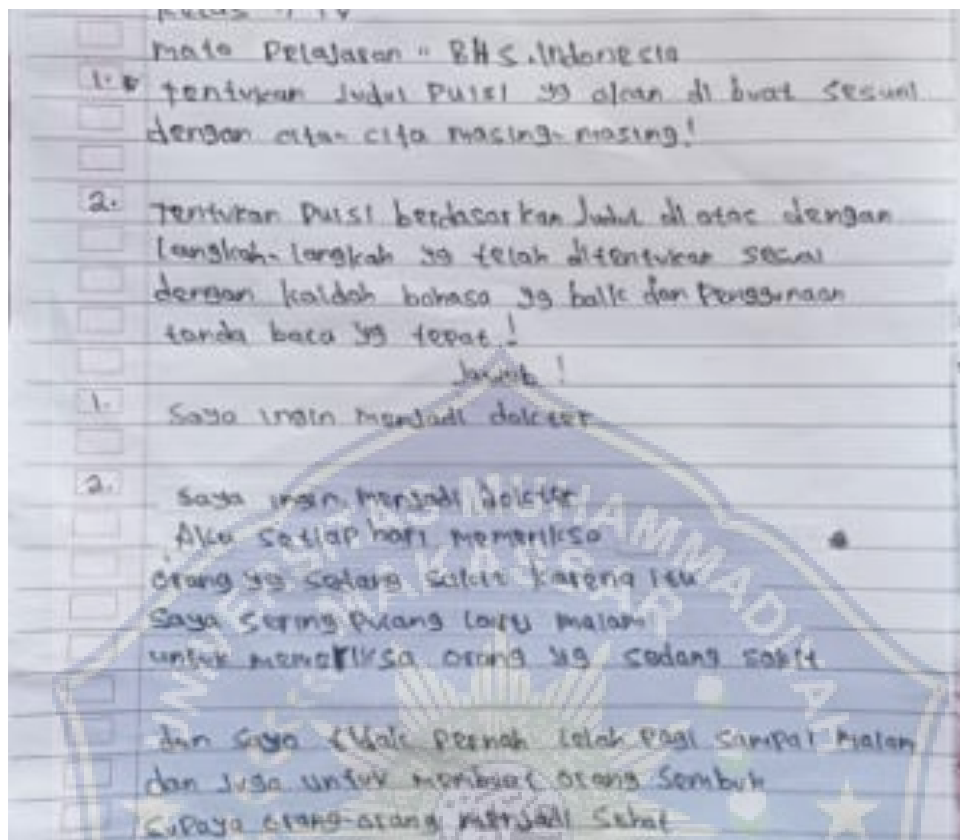 Kelas : IV
Mata Pelajaran " BHS.Indonesia
1. tentukan Judul Puisi yg akan di buat sesuai
dengan cita-cita masing-masing!
2. Tentukan Puisi berdasarkan Judul di atas dengan
langkah-langkah yg telah ditentukan sesuai
dengan kaidah bahasa yg baik dan Penggunaan
tanda baca yg tepat!
Jawab !
1. Saya ingin menjadi dokter
2. Saya ingin menjadi dokter
Aku setiap hari memeriksa
orang yg sedang sakit karena itu
Saya sering pulang larut malam
untuk memeriksa orang yg sedang sakit
dan saya tidak pernah lelah pagi sampai malam
dan juga untuk membuat orang sembuh
supaya orang-orang menjadi sehat
UNIVERSITAS MUHAMMADIYAH
MAKASSAR